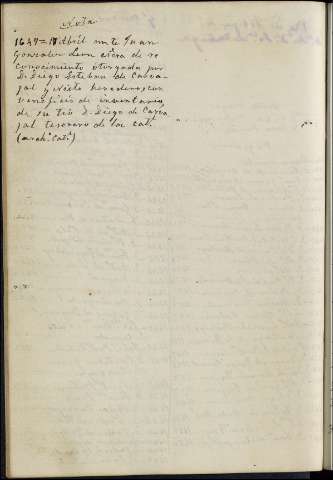 Nota
1647=17 Abril ante Juan
Gonzalez Leon escra de re
conocimiento otorgada por
D. Diego Esteban de Carva
jal y Nieto heredero con
beneficio de inventario
de su tio D. Diego de Carva
jal tesorero de la cat.l
(arch.o Cat.l)